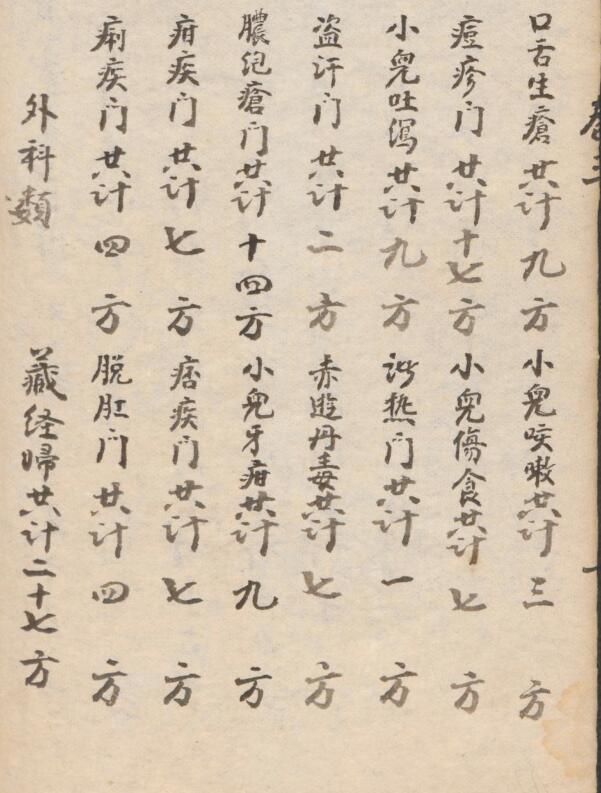 卷三
口舌生瘡共计九方 小兒咳嗽共计三方
痘疹门共计十七方 小兒傷食共计七方
小兒吐瀉共计九方 諸热门共计一方
盗汗门共计二方 赤遊丹毒共计七方
膿疱瘡门共计十四方 小兒牙疳共计九方
疳疾门共计七方 痞疾门共计七方
痢疾门共计四方 脱肛门共计四方
外科類 藏经 共计二十七方